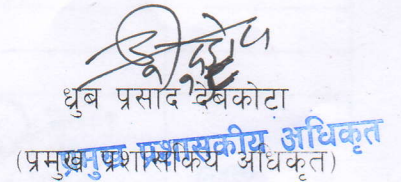 ध्रुब प्रसाद देबकोटा
प्रमुख प्रशासकीय अधिकृत
(प्रमुख प्रशासकीय अधिकृत)